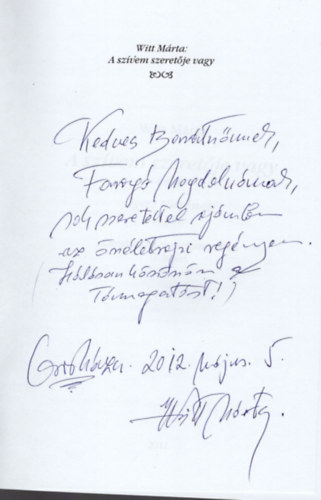 Witt Márta:
A szívem szeretője vagy
Kedves
Faragó Magdolnának,
sok szeretettel ajánlom
az önéletrajzi regényem.
Hálásan köszönöm a
Támogatást!
2012. május. 5.
Witt Márta.